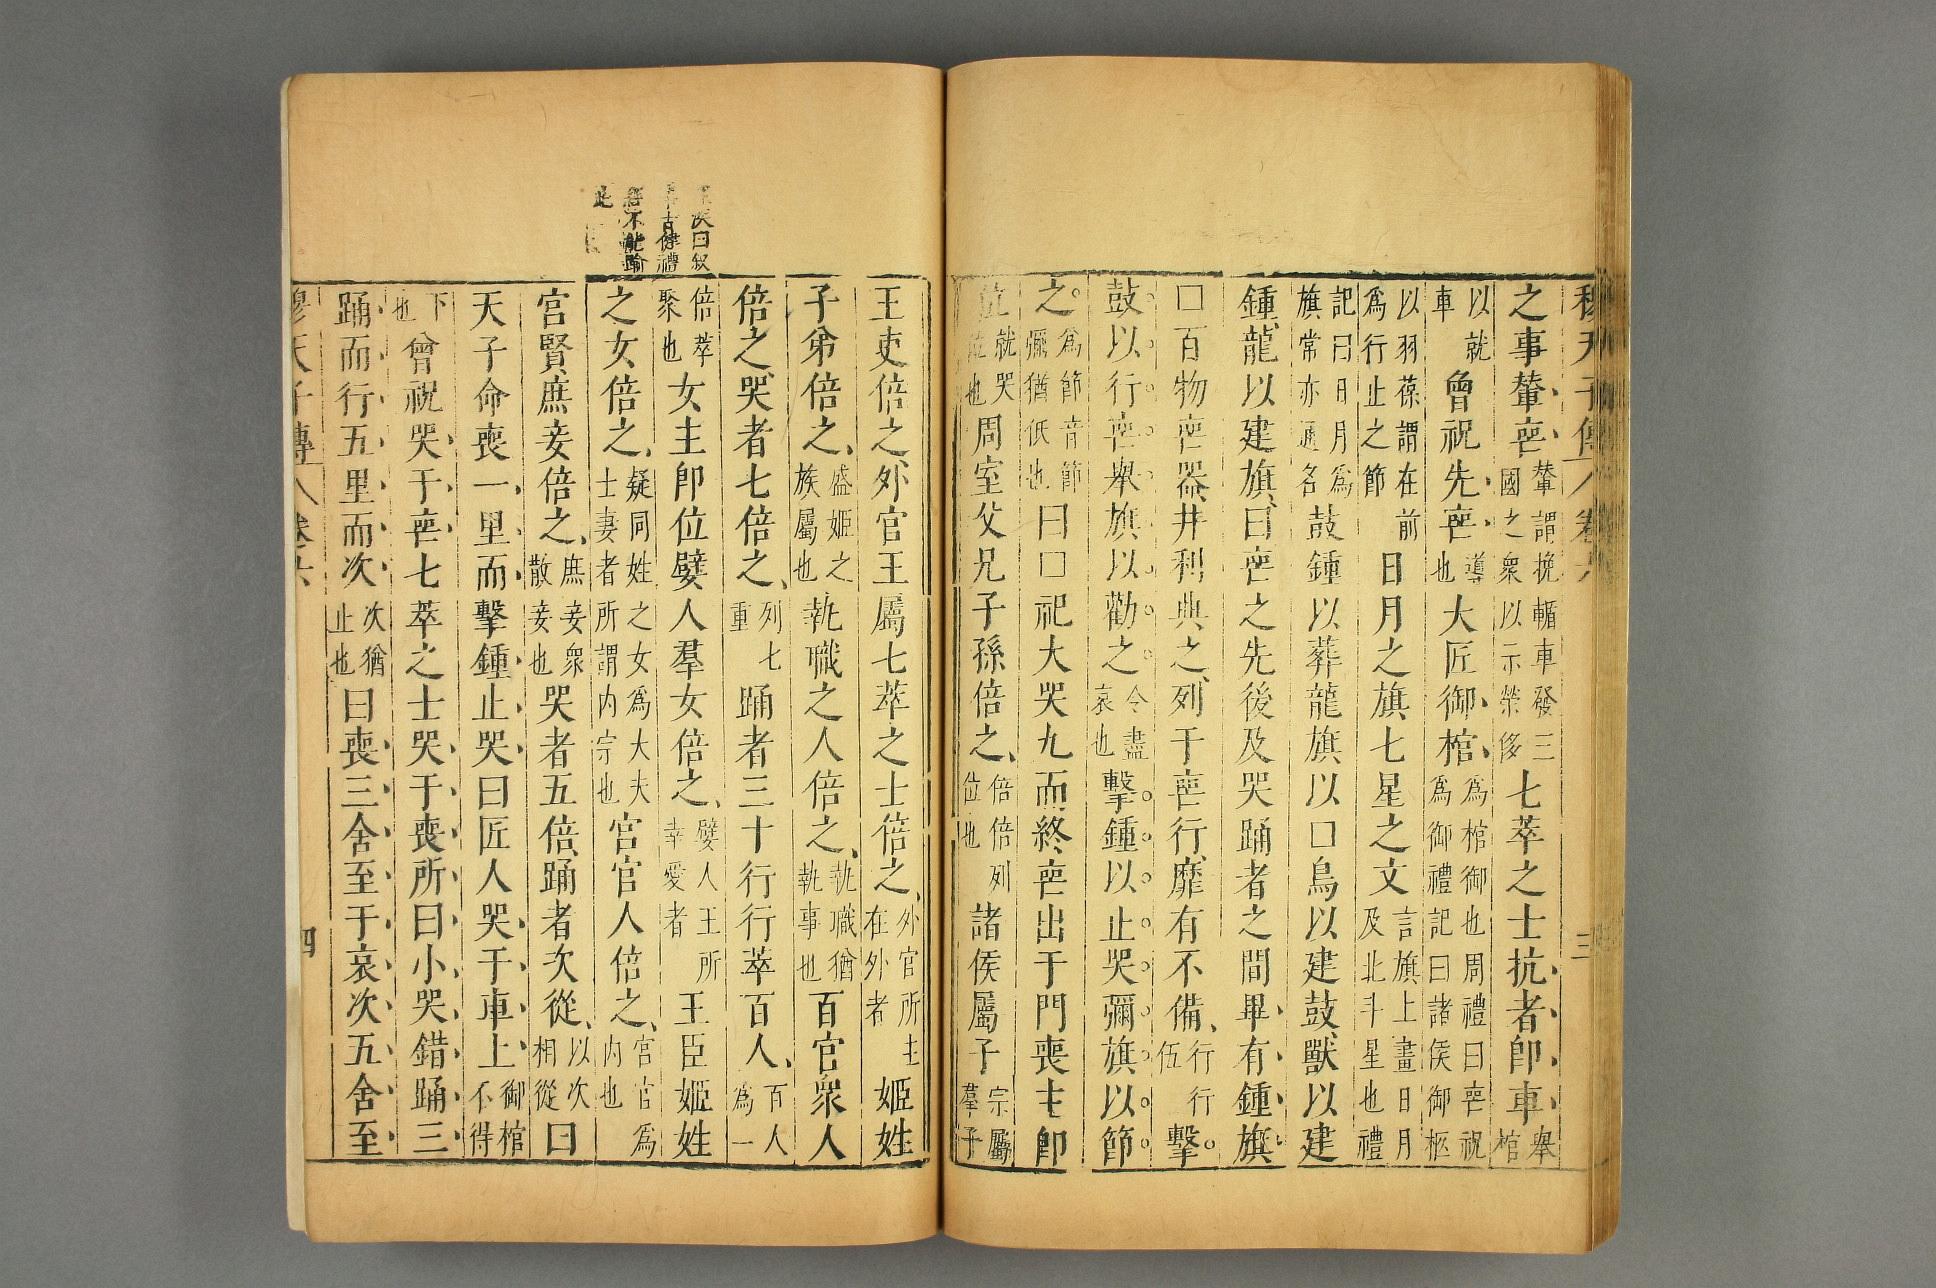 穆天子傳 卷六 三
之事輦喪輦謂挽輴車發三國之衆以示榮侈七萃之士抗者即車舉棺
以就車曾祝先喪導也大匠御棺爲棺御也周禮曰喪祝爲御禮記曰諸侯御柩
以羽葆謂在前爲行止之節日月之旗七星之文言旗上畫日月及北斗星也禮
記曰日月爲旗常亦通名鼓鍾以葬龍旗以□鳥以建鼓獸以建
鍾龍以建旗曰喪之先後及哭踊者之間畢有鍾旗
□百物喪器井利典之列于喪行靡有不備行行伍擊
鼓以行喪舉旗以勸之令盡哀也擊鍾以止哭彌旗以節
之爲節音節彌猶低也曰□祀大哭九而終喪出于門喪主即
位就哭位也周室父兄子孫倍之倍倍列位也諸侯屬子宗屬羣子
曰叙
古禮
不能踰
此
王吏倍之外官王屬七萃之士倍之外官所主在外者姬姓
子弟倍之盛姬之族屬也執職之人倍之執職猶執事也百官衆人
倍之哭者七倍之列七重踊者三十行行萃百人百人爲一
倍萃聚也女主即位嬖人羣女倍之嬖人王所幸愛者王臣姬姓
之女倍之疑同姓之女爲大夫士妻者所謂内宗也宮官人倍之宮官爲内也
宮賢庶妾倍之庶妾衆散妾也哭者五倍踊者次從以次相從曰
天子命喪一里而擊鍾止哭曰匠人哭于車上御棺不得
下也曾祝哭于喪七萃之士哭于喪所曰小哭錯踊三
踊而行五里而次次猶止也曰喪三舍至于哀次五舍至
穆天子傳 卷六 四